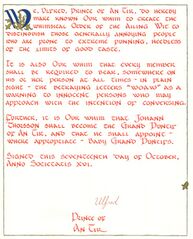 We, Elfred, Prince of An Tir, do hereby
make known Our whim to create the
whimsical Order of the Ailing Wit to
distinguish those generally annoying people
who are prone to extreme punning, heedless
of the limits of good taste.
It is also Our whim that every member
shall be required to bear, somewhere on
his or her person at all times - in plain
sight - the betraying letters "WOAW" as a
warning to innocent persons who may
approach with the intention of conversing.
Further, it is Our whim that Johann
Thorsson shall become the Grand Punster
of An Tir, and that he shall appoint -
where appropriate - Baby Grand Punsters.
Signed this seventeenth day of October,
Anno Societatis XVI.
Elfred
Prince of
An Tir